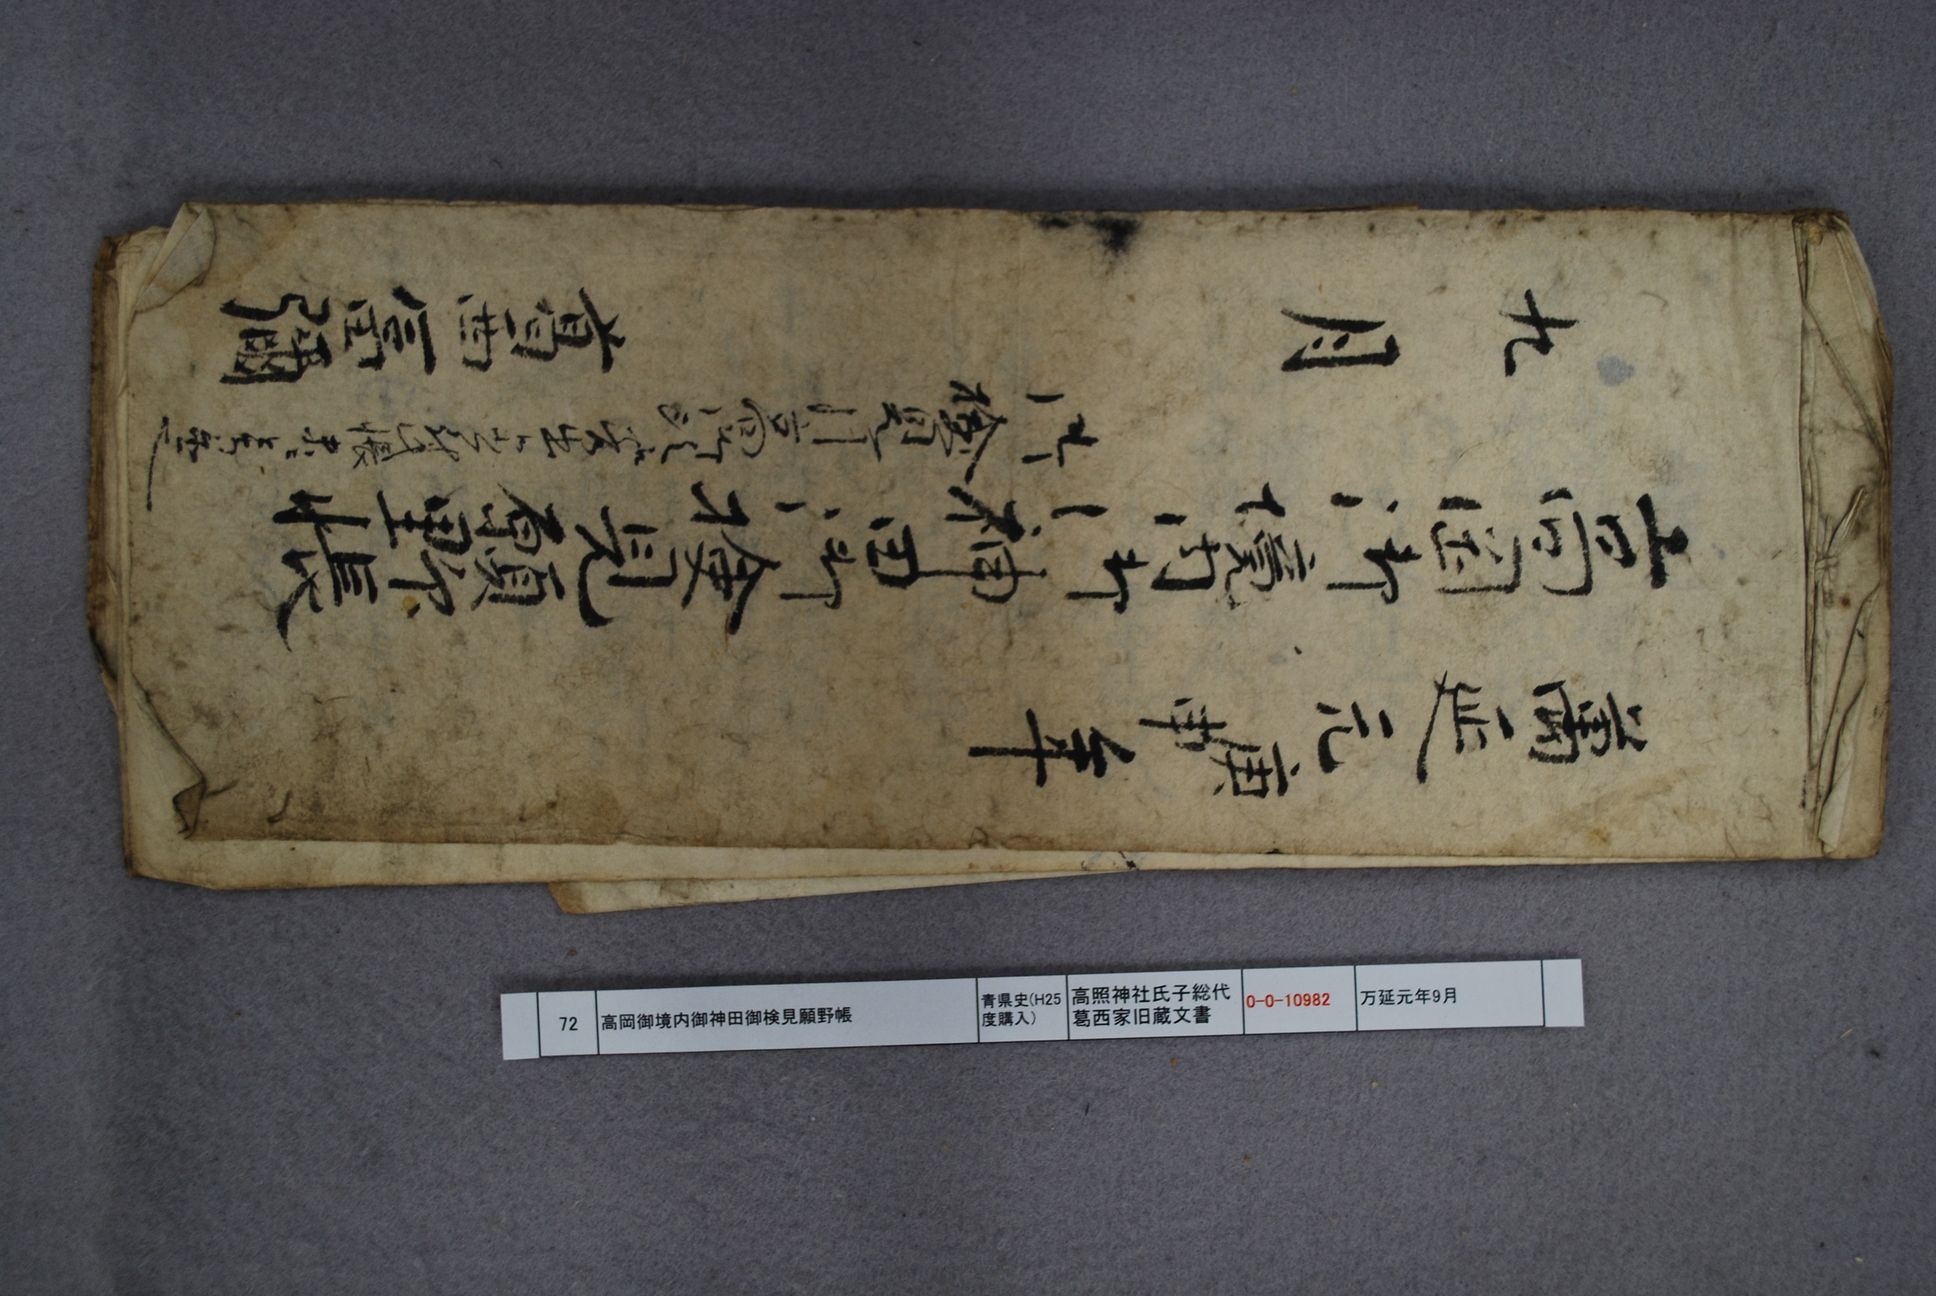 萬延元庚申年
高岡御境内御神田御検見願野帳
九月
葛西富彌
72
高岡御境内御神田御検見願野帳
青県史(H25
度購入)
高照神社氏子総代
葛西家旧蔵文書
O-O-10982
万延元年9月